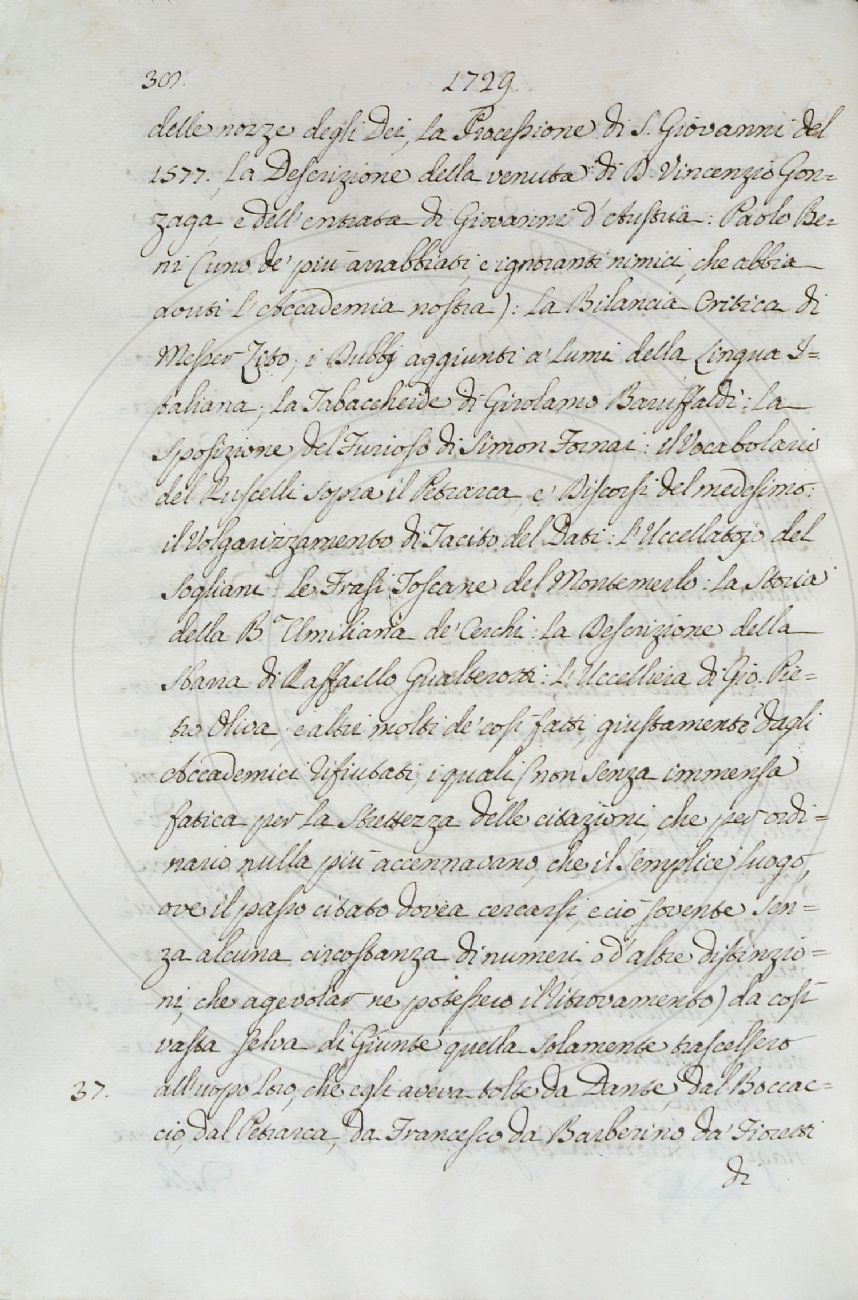 30).
1729.
delle nozze degli Dei, la Processione di S. Giovanni del
1577. La Descrizione della venuta di D. Vincenzio Gon=
zaga, e dell'entrata di Giovanni d'Austria: Paolo Be=
ni (uno de' più arrabbiati, e ignoranti nimici, che abbia
avuti l'Accademia nostra): la Bilancia Critica di
Messer Zito; i Dubbj aggiunti a' lumi della Lingua I=
taliana; la Tabaccheide di Girolamo Baruffaldi: la
sposizione del Furioso di Simon Fornari: il Vocabolario
del Ruscelli sopra il Petrarca, e' Discorsi del medesimo:
il Volgarizzamento di Tacito del Dati: l'Uccellatojo del
Sogliani: le Frasi Toscane del Montemerlo: la Storia
della B.ª Umiliana de' Cerchi: la Descrizione della
sbarra di Raffaello Gualterotti: l'Uccelliera di Gio. Pie=
tro Oliva; e altri molti de' così fatti, giustamente dagli
Accademici rifiutati, i quali (non senza immensa
fatica per la strettezza delle citazioni, che per ordi=
nario nulla più accennavano, che il semplice luogo,
ove il passo citato dovea cercarsi, e ciò sovente sen=
za alcuna circostanza di numeri, o d'altre distinzio=
ni, che agevolar ne potessero il ritrovamento) da così
vasta selva di Giunte quella solamente trascelsero
37. all'uopo loro, che egli aveva tolte da Dante, dal Boccac=
cio, dal Petrarca, da Francesco da Barberino, da' Fioretti
di